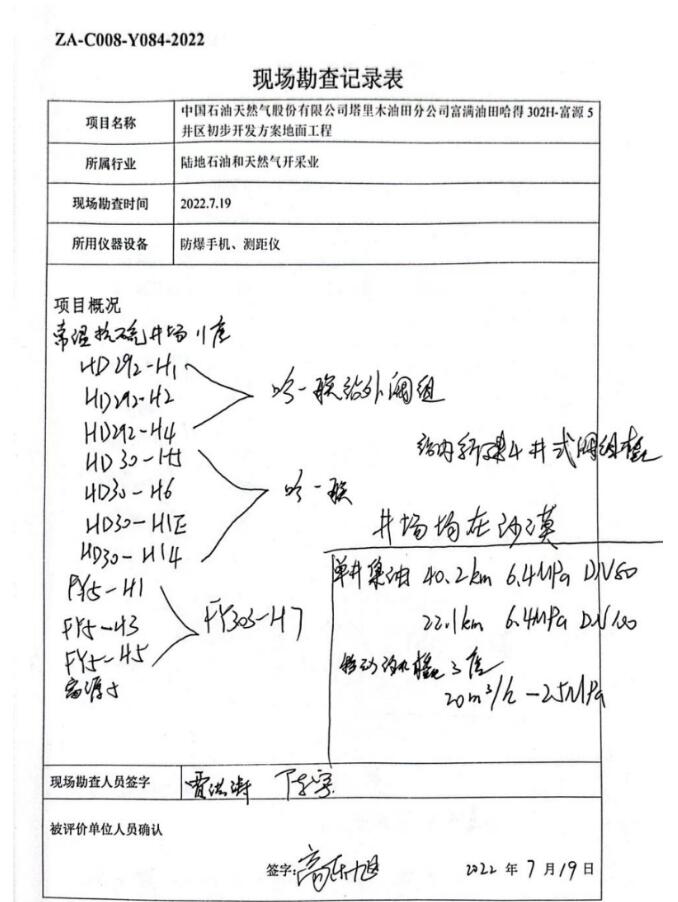 ZA-C008-Y084-2022
现场勘查记录表
项目名称
中国石油天然气股份有限公司塔里木油田分公司富满油田哈得 302H-富源 5
井区初步开发方案地面工程
所属行业
陆地石油和天然气开采业
现场勘查时间
2022.7.19
所用仪器设备
防爆手机、测距仪
项目概况
常温抗硫井场 11座
HD292-H1
HD292-H2
HD292-H4
哈一联站外阀组
HD30-H5
HD30-H6
HD30-H1E
HD30-H14
哈一联
FY5-H1
FY5-H3
FY5-H5
FY303-H7
富源5
站内新建4井式阀组橇
井场均在沙漠
单井集油 40.2km 6.4MPa DN80
22.1km 6.4MPa DN100
橇 3座
20m³/h-25MPa
现场勘查人员签字
被评价单位人员确认
签字:
2022 年 7 月 19 日